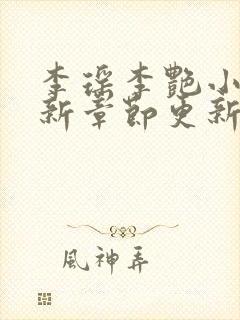 李瑶李艷小
新章節更新
風神弄